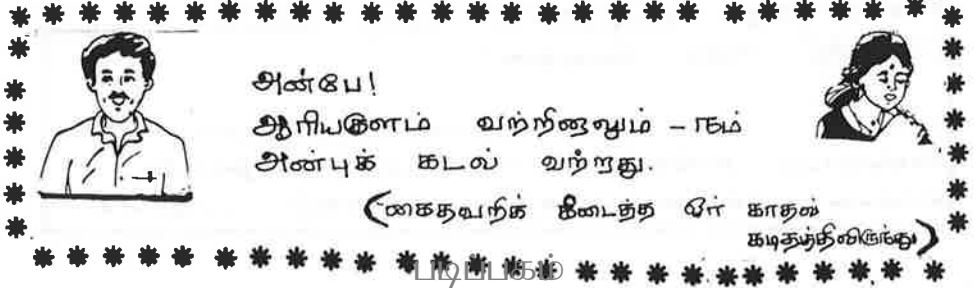 அன்பே!
ஆரியகுளம் வற்றினாலும் - நம்
அன்புக் கடல் வற்றாது.
(கைதவறிக் கிடைத்த ஓர் காதல்
கடிதத்திலிருந்து)
படிப்பகம்